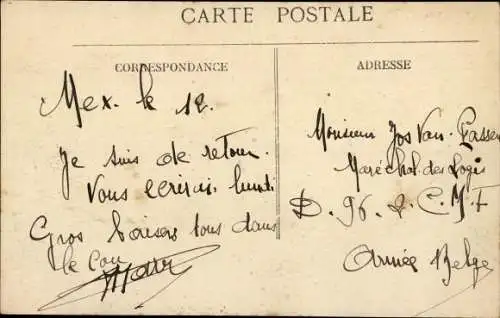 CARTE POSTALE
CORRESPONDANCE
ADRESSE
Mex. le 12
Je suis de retour.
Vous écrirai lundi
Gros baisers tous dans
le cou
Monsieur Jos Van
Maréchal des Logis
D. 96.
Armée Belge